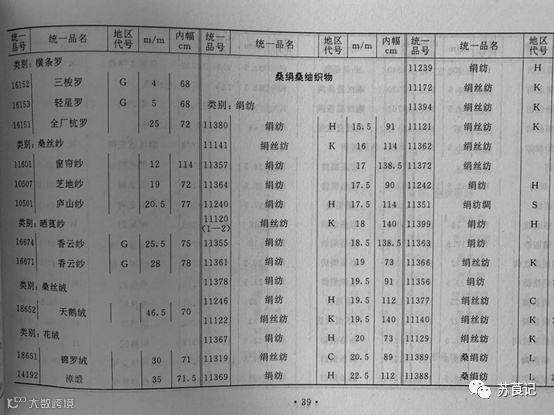 统一品号 统一品名 地区代号 m/m 内幅cm 统一品号 统一品名 地区代号 m/m 内幅cm 统一品号 统一品名 地区代号
类别：横条罗
16152 三梭罗 G 4 68
16153 轻星罗 G 5 68
16151 全厂杭罗 25 72
类别：桑丝纱
11601 窗帘纱 12 114
10507 芝地纱 19 72
10501 庐山纱 20.5 77
类别：晒莨纱
16674 香云纱 G 25.5 75
16671 香云纱 G 28 78
类别：桑丝绒
18652 天鹅绒 46.5 70
类别：花绒
18651 锦罗绒 30 71
14192 漳缎 35 71.5
桑绢桑䌷织物
类别：绢纺
11380 绢纺 H 15.5 91
11141 绢丝纺 K 16 114
11357 绢纺 17 138.5
11364 绢纺 17.5 90
11240 绢纺 H 17.5 114
11120(1—2) 绢丝纺 K 18 140
11355 绢纺 18.5 138.5
11361 绢纺 19 73
11378 绢纺 19.5 91
11246 绢纺 H 19.5 112
11122 绢丝纺 K 19.5 140
11367 绢纺 H 20 73
11319 绢丝纺 C 20.5 89
11369 绢纺 H 22.5 112
11239 绢纺 H
11172 绢丝纺 K
11394 绢丝纺 K
11121 绢丝纺 K
11362 绢丝纺
11372 绢丝纺
11242 绢纺 H
11351 绢纺绸 S
11399 绢纺 H
11363 绢纺
11366 绢丝纺 K
11356 绢纺
11377 桑绢纺 C
11140 绢丝纺 K
11129 绢丝纺 K
11389 桑绢纺 L
11388 桑绢纺 L
·39·
大数跨境
苏莨记